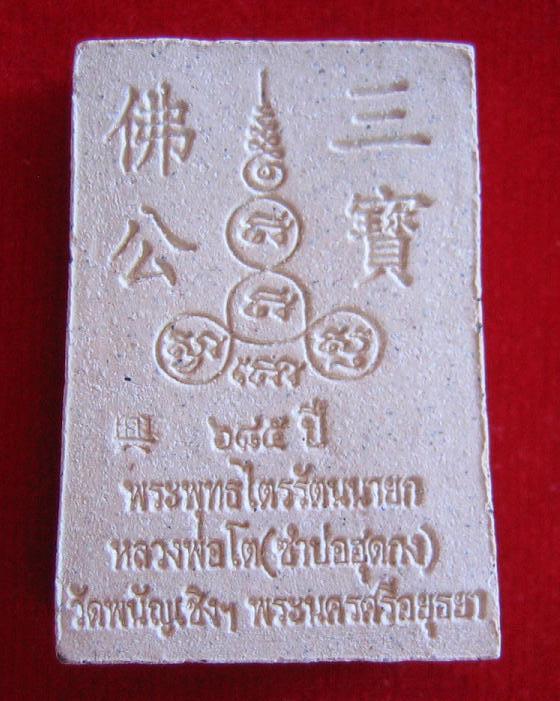 三寶
佛公
๖๘๕ ปี
พระพุทธไตรรัตนนายก
หลวงพ่อโต(ซำปอฮุดกง)
วัดพนัญเชิงฯ พระนครศรีอยุธยา